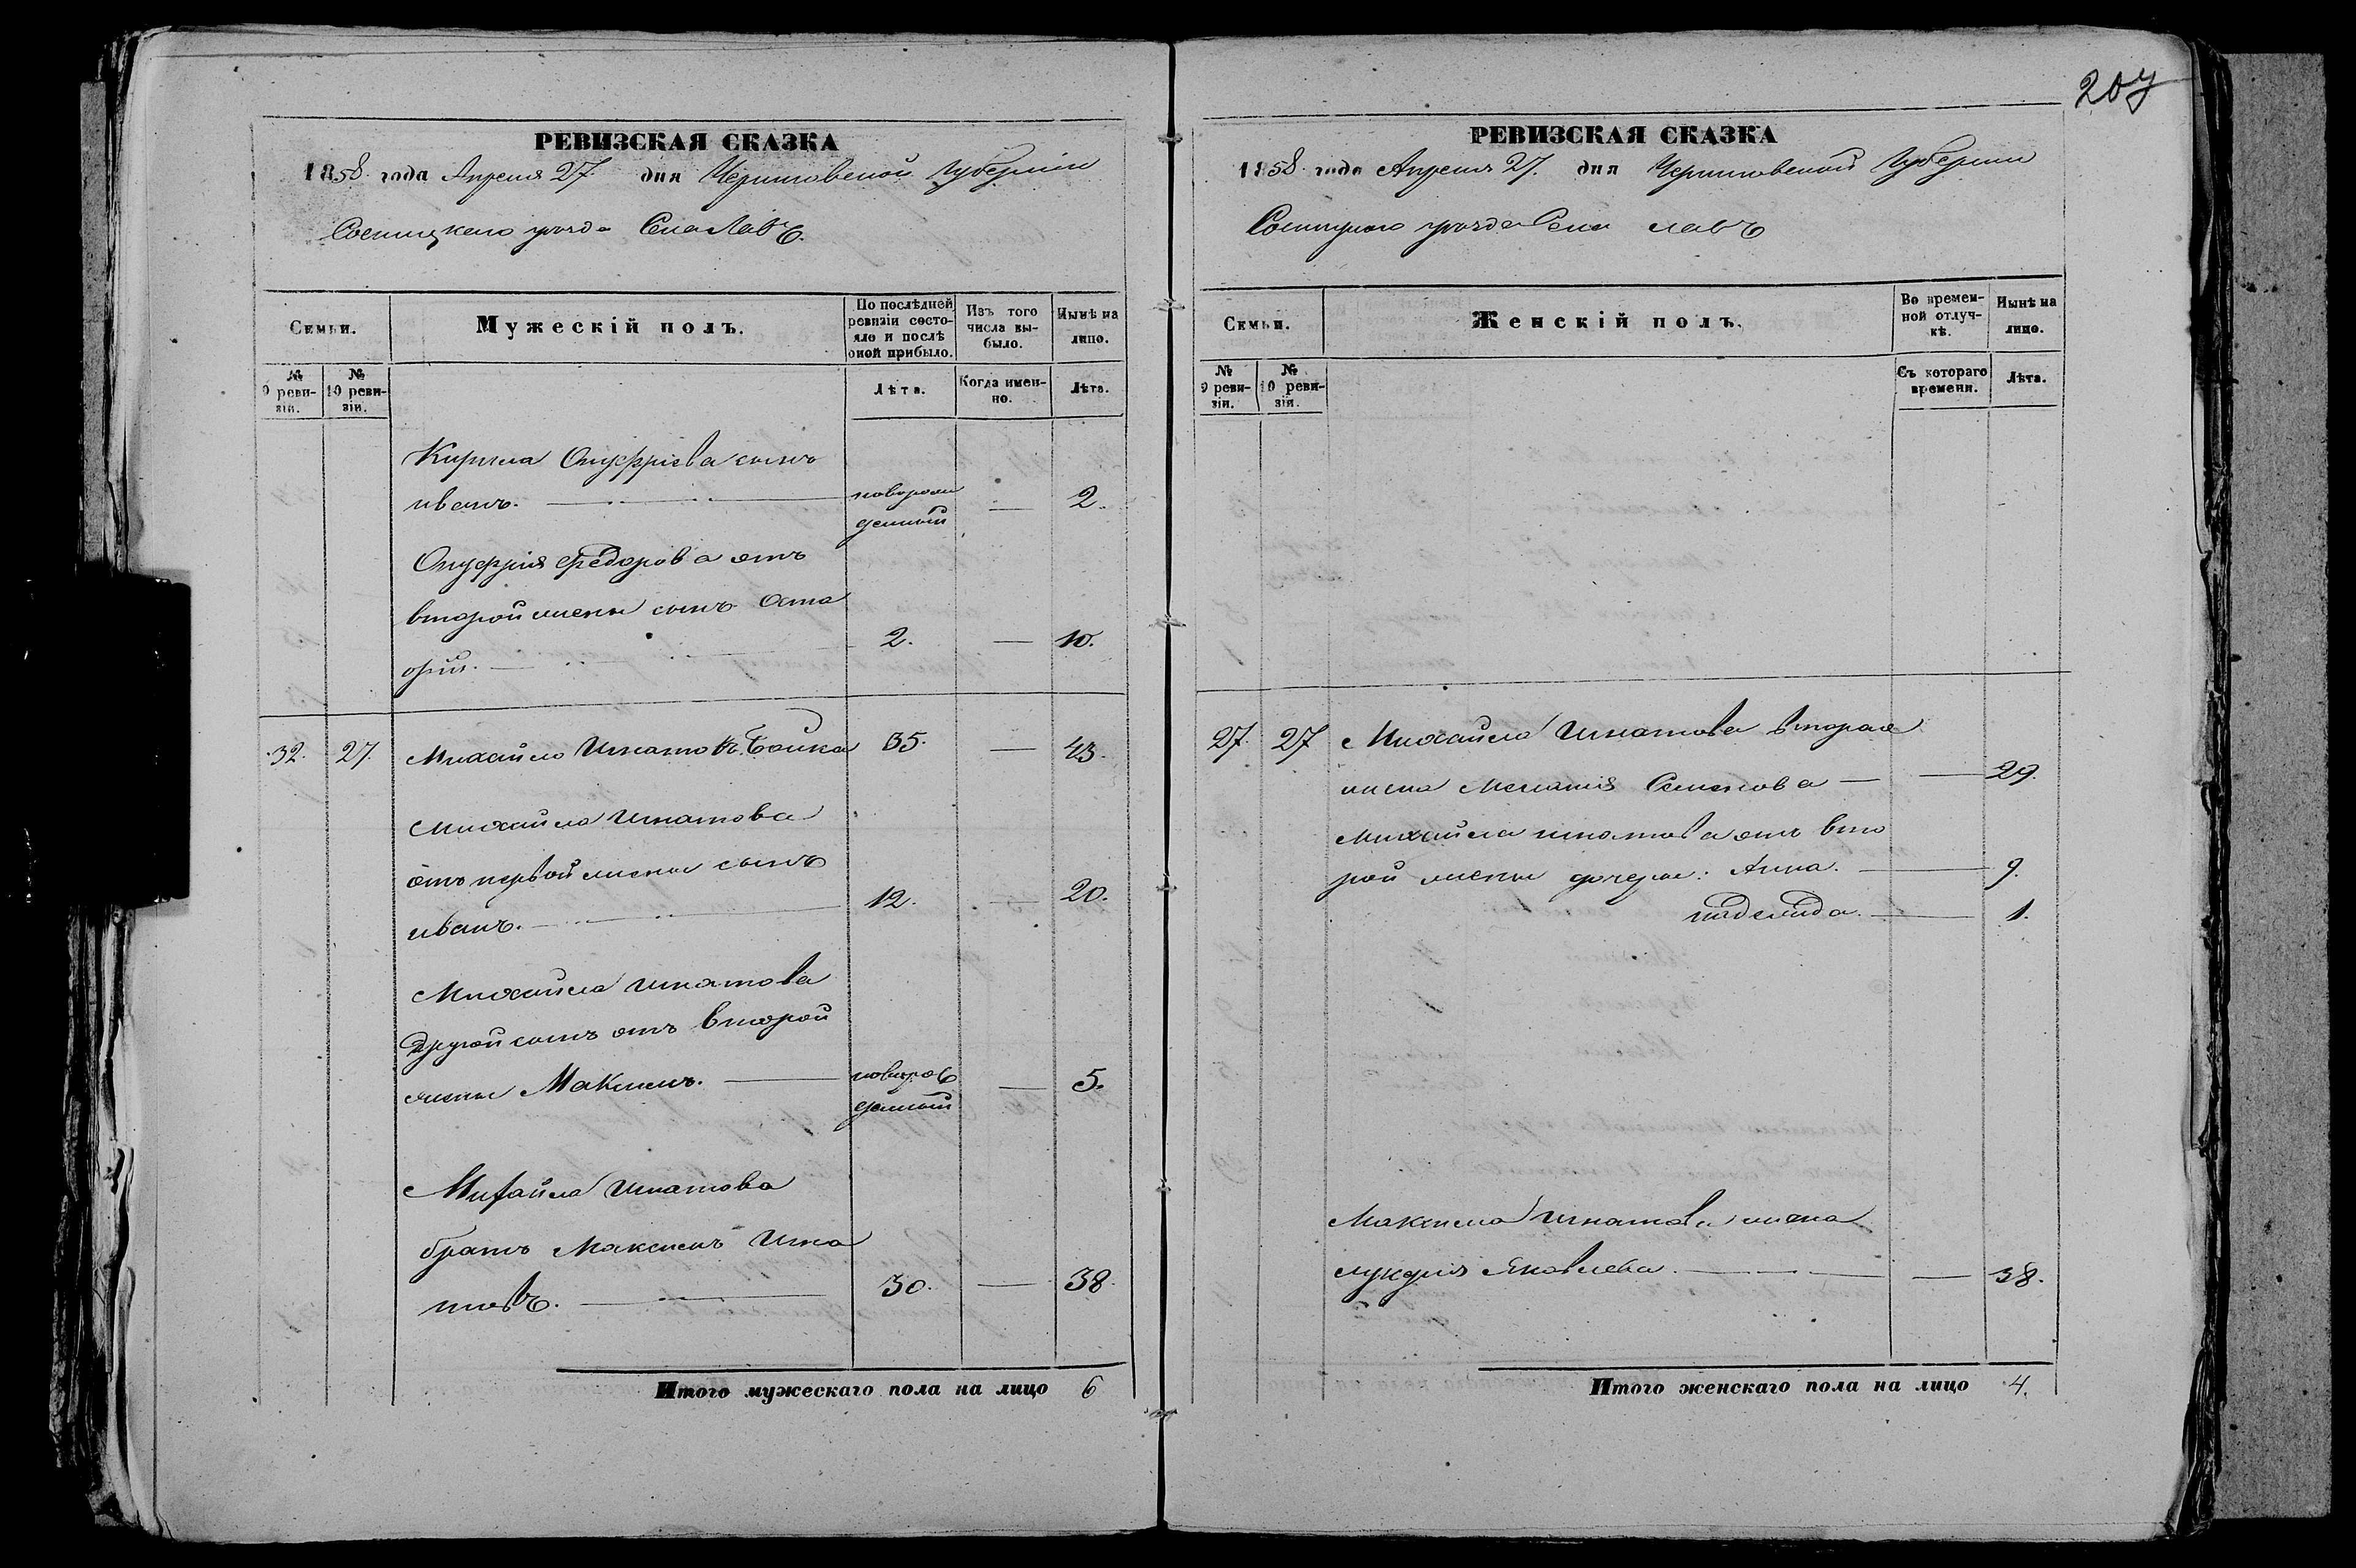 207
РЕВИЗСКАЯ СКАЗКА
1858 года Апреля 27 дня Черниговской губернии
Сосницкого уезда Села Лавъ.
Семьи.
Мужескій полъ.
По послѣдней ревизіи состояло и послѣ оной прибыло.
Изъ того числа выбыло.
Нынѣ на лицо.
№ 9 ревизіи.
№ 10 ревизіи.
Лѣта.
Когда именно.
Лѣта.
Кирила Онуфріева сынъ
иванъ. новорож — 2.
денный
Онуфрія Федорова отъ
второй жены сынъ
2. — 10.
32. 27. Михайло Игнатовъ Бойко 35. — 43.
Михайла Игнатова
отъ первой жены сынъ
иванъ. 12. — 20.
Михайла Игнатова
другой сынъ отъ второй
жены Максимъ. — новорож — 5.
денный
Михайла Игнатова
братъ Максимъ Игна
товъ. 30. — 38.
Итого мужескаго пола на лицо 6
РЕВИЗСКАЯ СКАЗКА
1858 года Апреля 27. дня Черниговской Губернии
Сосницкого уезда Села лавъ
Семьи.
Женскій полъ.
Во временной отлучкѣ.
Нынѣ на лицо.
№ 9 ревизіи.
№ 10 ревизіи.
Съ котораго времени.
Лѣта.
27. 27 Михайла Игнатова вторая
жена Мелания Семенова — — 29.
Михайла игнатова отъ вто
рой жены дочери: Анна. — 9.
— 1.
Максима Игнатова жена
лукерия Яковлева. — — 38.
Итого женскаго пола на лицо 4.